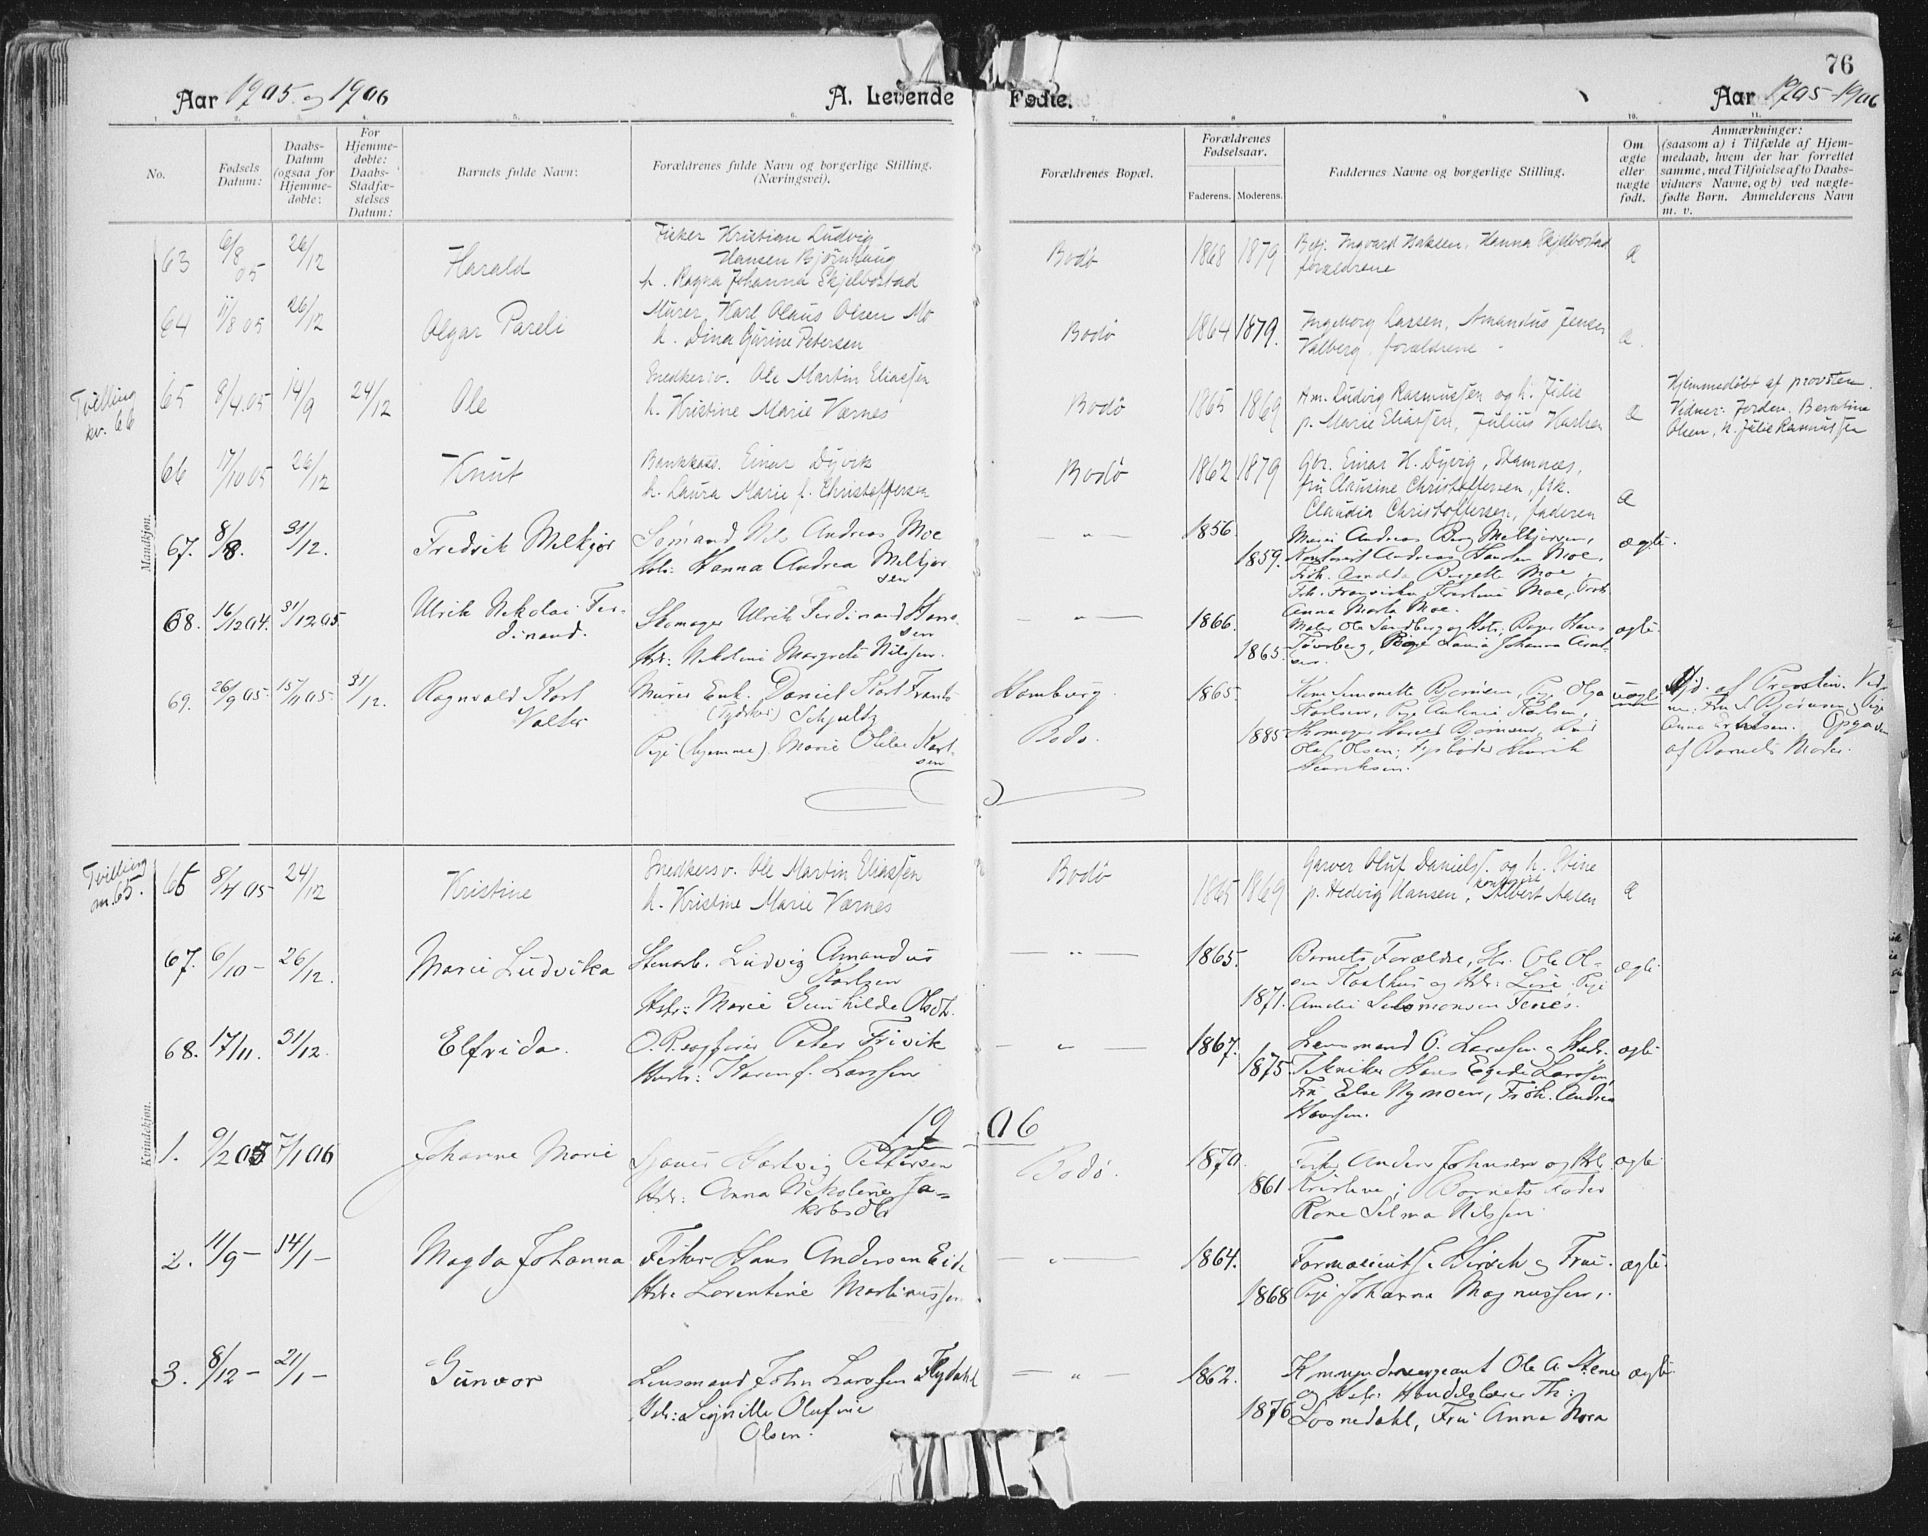 76
Aar 1905 og 1906
A. Levende Fødte.
Aar 1905-1906
1. 2. 3. 4. 5. 6. 7. 8 9. 10. 11.
No.
Fødsels Datum:
Daabs-Datum (ogsaa for Hjemmedøbte:
For Hjemmedøbte: Daabs-Stadfæstelses Datum:
Barnets fulde Navn:
Forældrenes fulde Navn og borgerlige Stilling. (Næringsvei).
Forældrenes Bopæl.
Forældrenes Fødselsaar.
Faderens. Moderens.
Faddernes Navne og borgerlige Stilling.
Om ægte eller uægte født.
Anmærkninger:
(saasom a) i Tilfælde af Hjemmedaab, hvem der har forrettet samme, med Tilføielse af to Daabsvidners Navne, og b) ved uægtefødte Børn. Anmelderens Navn m. v.
Mandkjøn.
63 6/8 05 26/12 Harald
Fisker Kristian Ludvig
Hansen Bjørnhaug
h. Ragna Johanna Skjelbostad
Bodø 1868 1879
Hanna Skjelbostad
forældrene
æ
64 11/8 05 26/12 Olgar Pareli
Murer Karl Olaus Olsen Mo
h. Dina Gurine Petersen
Bodø 1864 1879.
Ingeborg Larsen, Amandus Jensen
Valberg, forældrene
æ.
Tvilling
kv. 66
65 8/4.05 14/9 24/12 Ole
Snedkersv. Ole Martin Eliassen
h. Kristine Marie Værnes
Bodø 1865 1869
Am. Ludvig Rasmussen og h. Julie
p. Marie Eliassen, Julius Karlsen
æ
Hjemmedøbt af provsten.
Vidner: Jordm. Berntine
Olsen, h. Julie Rasmussen
66 17/10 05 26/12 Knut
Bankkass. Einar Dyvik
h. Laura Marie f. Christoffersen
Bodø 1862 1879
Gbr. Einar H. Dyvig, Stamnæs,
fru Clausine Christoffersen, frk.
Claudia Christoffersen, faderen
æ
67. 8/8. 31/12. Fredrik Melkjor
Sømand Nils Andreas Moe
Hstr: Hanna Andrea Melkjorsen
— „ — 1856. 1859.
Murer Andreas Berg Melkjorsen,
Kontorist Andreas Hansen Moe,
Frøk. Amalda Bergette Moe,
Frk. Fransiska Kristine Moe,
Anna Marta Moe.
ægte.
68. 16/12 04. 31/12 05. Ulrik Nikolai Ferdinand.
Skomager Ulrik Ferdinand Hansen
Hstr: Nikolini Margrete Nilssen.
— „ — 1866. 1865.
Maler Ole Sandberg og Hstr; Bager Hans
Tøvsberg, Pige Lovise Johanna Arntsen
ægte.
69. 26/9 05. 15/11 05. 31/12. Ragnvald Kort
Valter
Murer Enk. Daniel Kort Frants
(Tydsker) Schultz
Pige (hjemme) Marie Oldine Karlsen
Hamburg.
Bodø.
1865. 1885
Kone Simonette Bjørnsen, Pige Olga
Karlsen, Pige Antonie Karlsen,
Skomager Harald Bjørnsen,
Olaf Olsen; Henrik
Henriksen.
uægte
Hjd. af Provsten. Vidner:
Fru S. Bjørnsen og Pige
Anna Opgaven
af Barnets Moder.
Kvindekjøn.
Tvilling
m. 65.
66 8/4 05 24/12 Kristine
Snedkersv. Ole Martin Eliassen
h. Kristine Marie Værnes
Bodø 1865 1869
Garver Oluf Danielss. og h. Stine
p. Hedvig Hansen, Albert Aasen
æ
67. 6/10 - 26/12. Marie Ludvika
Stenarb. Ludvig Amandus
Karlsen
Hstr: Marie Gunhilde Olsdtr.
— „ — 1865. 1871.
Barnets Forældre, Gr. Ole Olsen
Kaalhus og Hstr: Line, Pige
Amalie Salomonsen Fenes.
ægte
68. 17/11. 31/12. Elfrida.
O.R.sagfører Peter Trivik
Hustr: Karen f. Larssen
— „ — 1867. 1875
Lensmand O. Larssen og Hustr.
Tekniker Hans Egede Larssen
Fru Else Nymoen, Frøk. Andrea
Hansen.
ægte
1906
1. 9/2 05 7/1 06 Johanne Marie
Gjøver Hartvig Pettersen
Hstr: Anna Nikoline Jakobsdtr
Bodø. 1870. 1861
Fisker Anders Johnsen og Hstr.
Kristine; Barnets Fader
Kone Selma Nilssen
ægte
2. 11/9 - 14/1 - Magda Johanna
Fisker Hans Andersen Eide
Hstr: Lorentine Martinussen.
— „ — 1864. 1868
Farmaceut S. Hirsch og Frue.
Pige Johanna Magnussen.
ægte.
3. 8/12 - 21/1 - Gunvor
Lensmand John Larssen Flydahl
Hstr: Signille Olufine
Olsen.
— „ — 1862. 1876
Kommandersergeant Ole A. Stene
og Hstr: Handelslærer Th:
Losnedahl, Fru Anna Nora
ægte